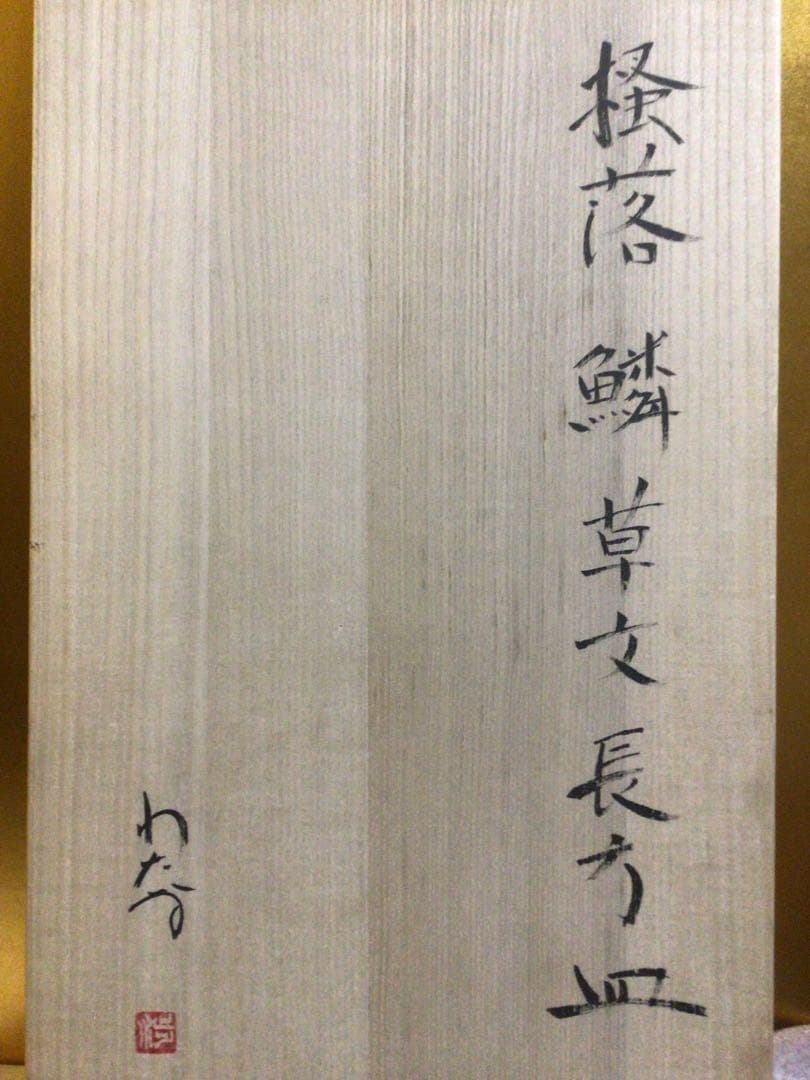 掻落 鱗草文長方皿
わたる